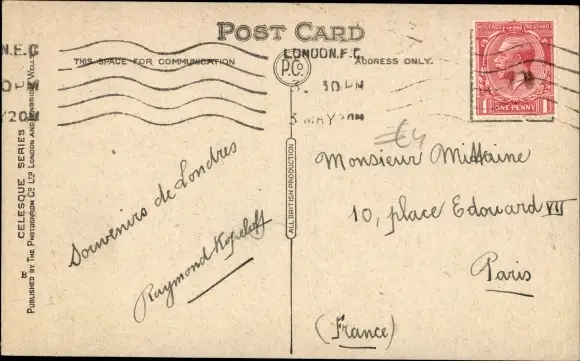 POST CARD
THIS SPACE FOR COMMUNICATION
ADDRESS ONLY.
P.Co.
LONDON.E.C.
3. 30 PM
5 MAY 20
N.E.C
0 PM
Y 20
POSTAGE & REVENUE
1 ONE PENNY 1
€4
Souvenirs de Londres
Raymond
Monsieur Mittaine
10, place Edouard VII
Paris
(France)
ALL BRITISH PRODUCTION
CELESQUE SERIES
PUBLISHED BY THE PHOTOCHROM CO. LTD. LONDON AND TUNBRIDGE WELLS